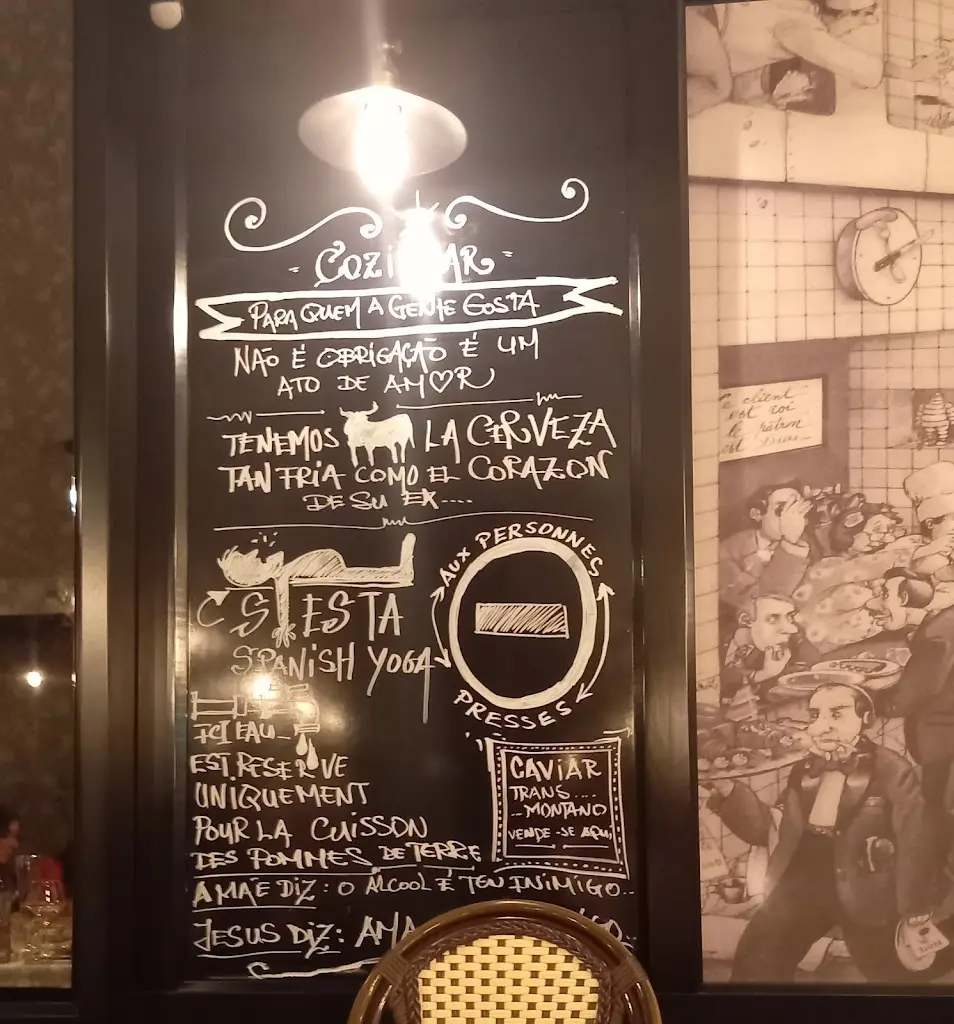 PARA QUEM A GENTE GOSTA
NÃO É OBRIGAÇÃO É UM
ATO DE AMOR
TENEMOS LA CERVEZA
TAN FRIA COMO EL CORAZON
DE SU EX....
AUX PERSONNES
PRESSES
SIESTA
SPANISH YOGA
ICI EAU...
EST RESERVE
UNIQUEMENT
POUR LA CUISSON
DES POMMES DE TERRE
CAVIAR
TRANS....
...MONTANO
VENDE-SE AQUI
A MÃE DIZ: O ALCOOL É TEU INIMIGO...
JESUS DIZ: AMA
le client
est roi
le patron